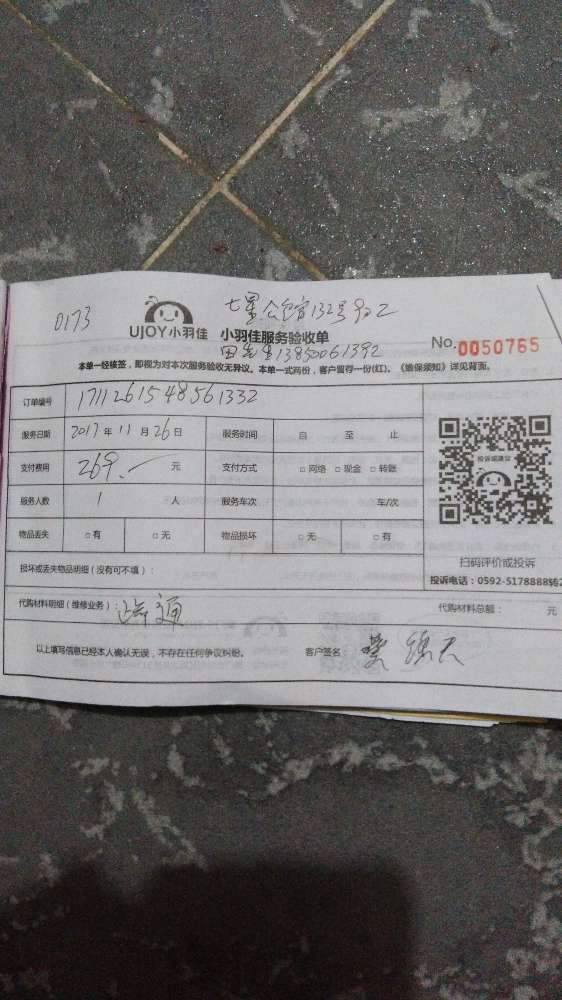 0173
七星公馆132号
UJOY小羽佳 小羽佳服务验收单
13850061392
No.0050765
本单一经核签，即视为对本次服务验收无异议。本单一式两份，客户留存一份(红)。《维保须知》详见背面。
订单编号 1711261548561332
服务日期 2017年11月26日 服务时间 自 至 止
支付费用 269. 元 支付方式 □网络 □现金 □转账
服务人数 1 人 服务车次 车/次
物品丢失 □有 □无 物品损坏 □无 □有
投诉或建议
扫码评价或投诉
损坏或丢失物品明细（没有可不填）：
投诉电话：0592-5178888转2
代购材料明细（维修业务）：疏通 代购材料总额： 元
以上填写信息已经本人确认无误，不存在任何争议纠纷。 客户签名